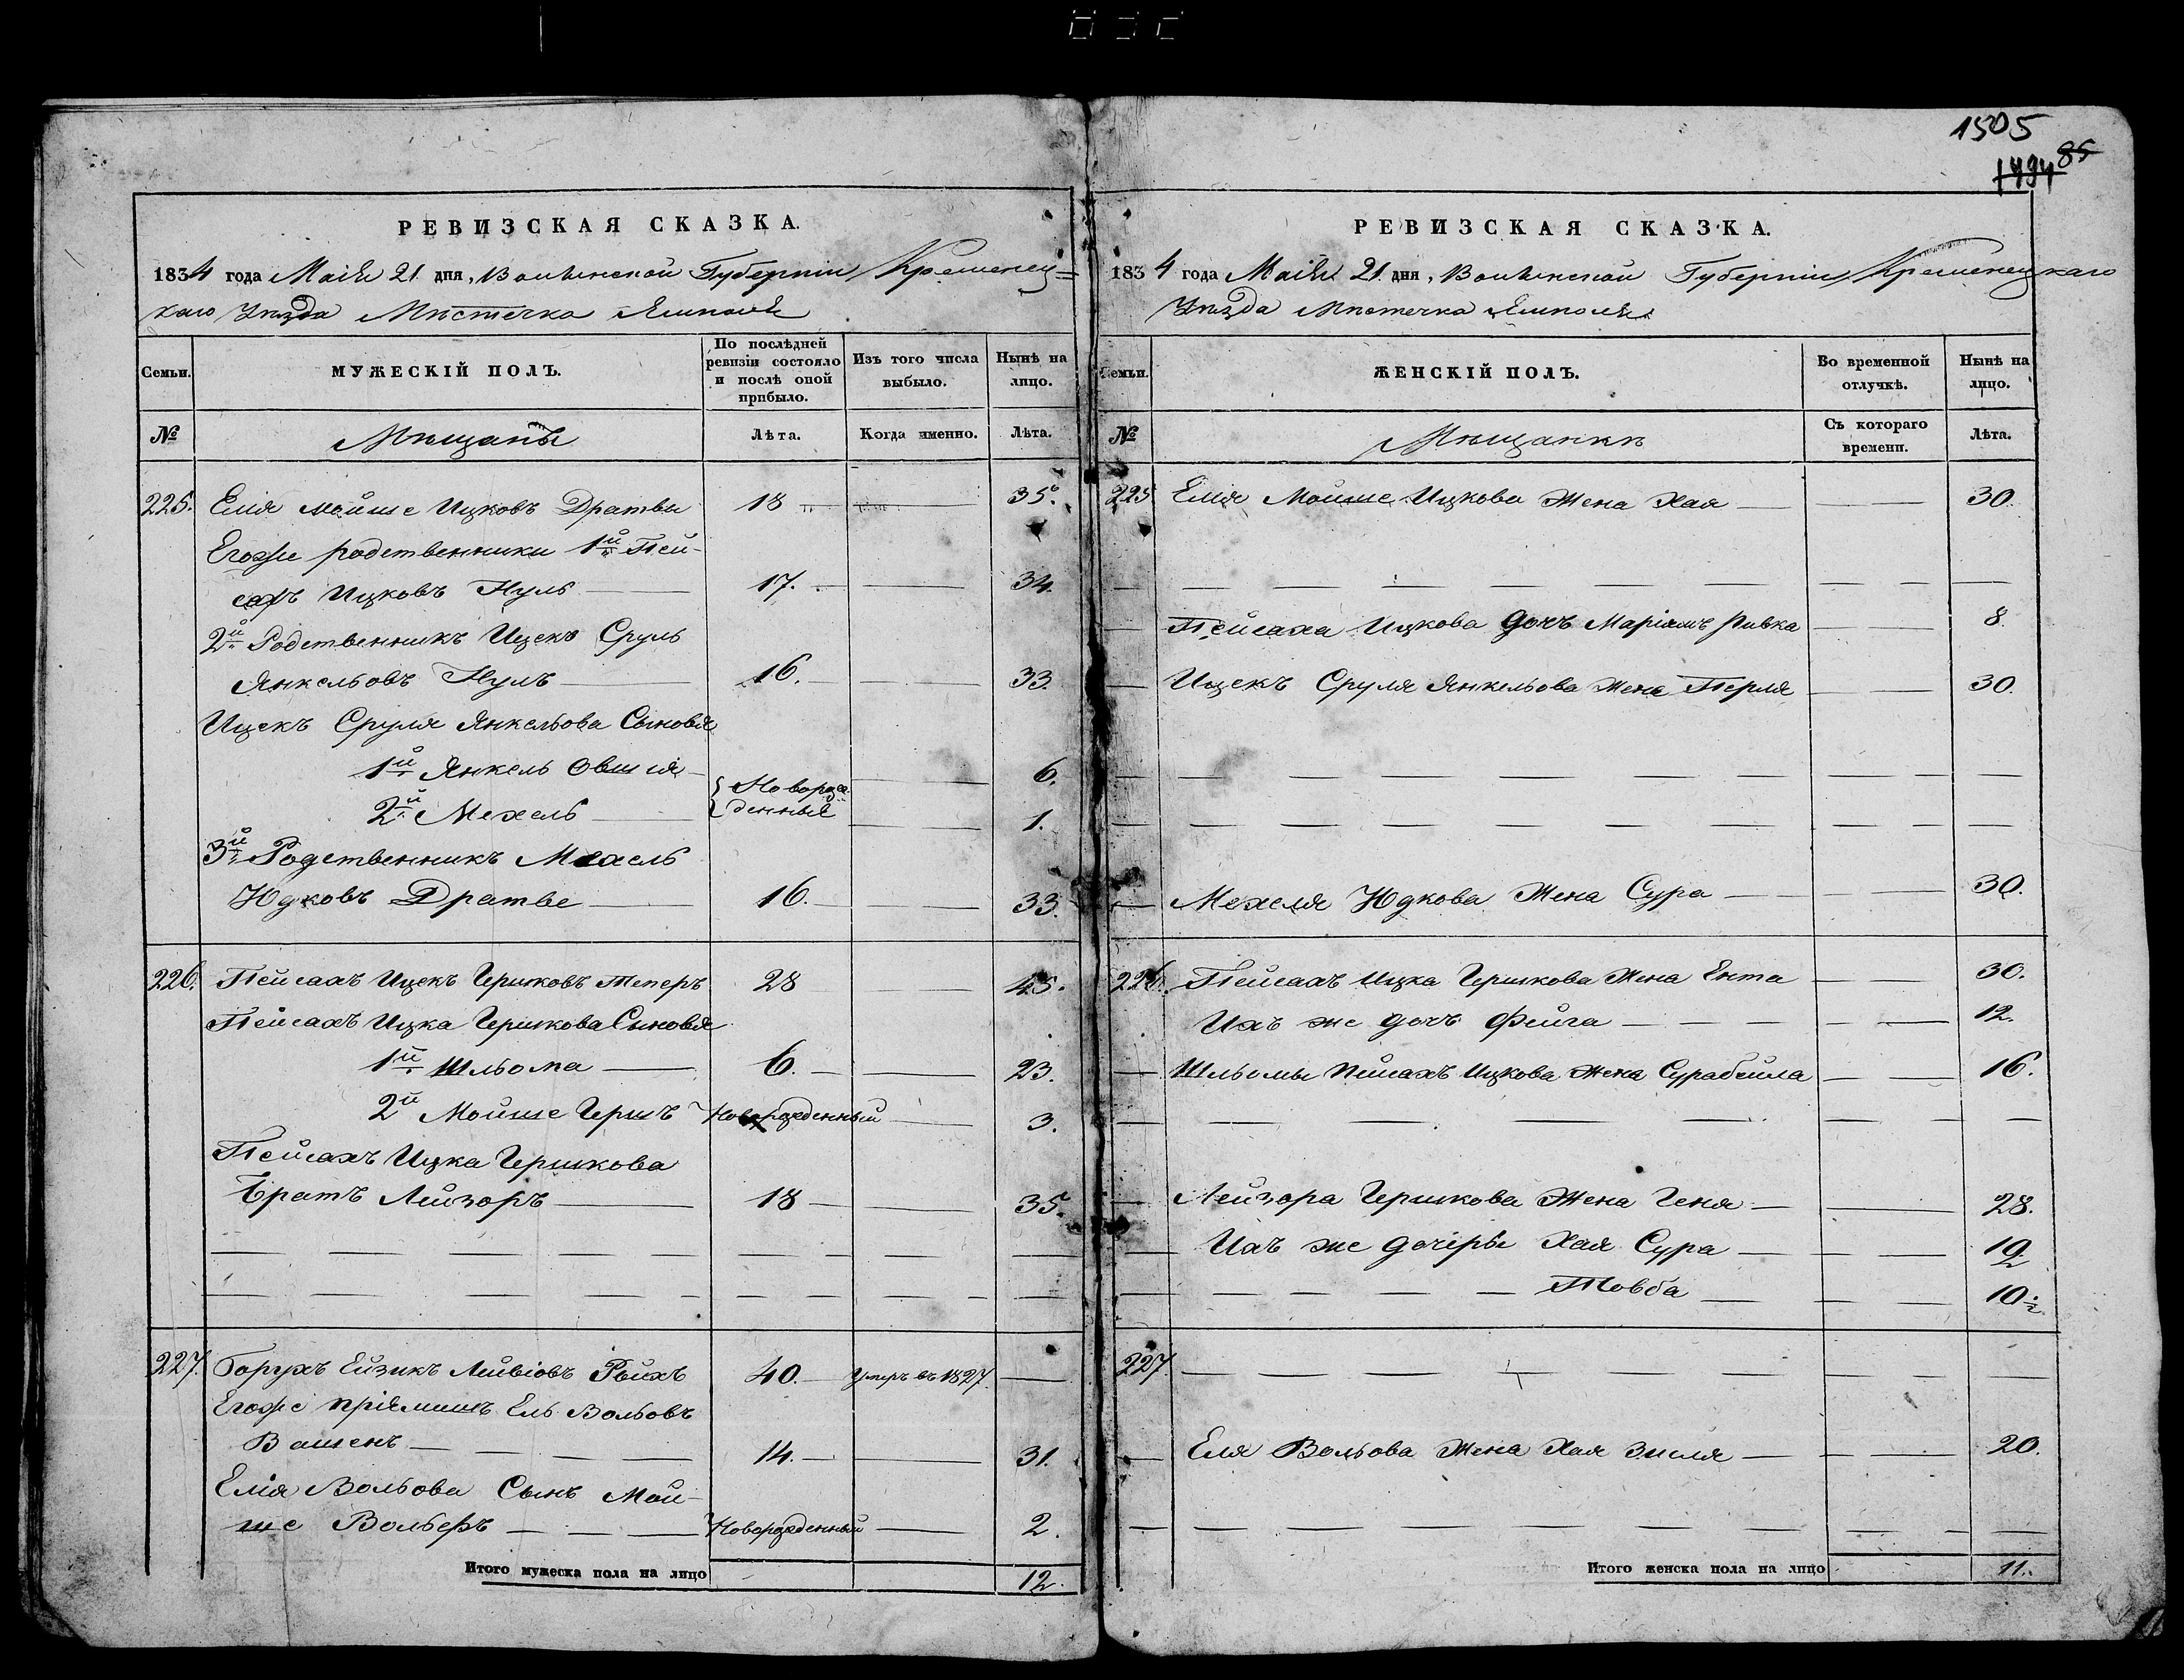 1505
1794 85
РЕВИЗСКАЯ СКАЗКА.
1834 года Маія 21 дня, Волынской Губерніи Кременец=
каго Уѣзда Мѣстечка Ямполя
Семьи.
МУЖЕСКІЙ ПОЛЪ.
По послѣдней ревизіи состояло и послѣ оной прибыло.
Изъ того числа выбыло.
Нынѣ на лицо.
№
Мѣщанъ
Лѣта.
Когда именно.
Лѣта.
225. Еліа Мойше Ицковъ Дратвы 18 35.
Егоже родственники 1й Пей-
сахъ Ицковъ Нуль 17. 34.
2й Родственникъ Ицекъ Сруль
Янкельовъ Нуль 16. 33.
Ицекъ Сруля Янкельова Сыновья
1й Янкель Овшія Новорож 6.
2й Мехель денные 1.
3й Родственникъ Мехель
Юдковъ Дратве 16. 33.
226. Пейсахъ Ицекъ Гершковъ Теперъ 28 45.
Пейсахъ Ицка Гершкова Сыновья
1й Шльома 6. 23.
2й Мойше Гершъ Новорожденный 3.
Пейсахъ Ицка Гершкова
Братъ Лейзоръ 18 35.
227. Борухъ Ейзикъ Лейвіовъ Рейхъ 40. Умеръ въ 1827.
Егоже пріемышъ Ель Вольовъ
Вайсенъ 14. 31.
Еліа Вольова Сынъ Мой-
ше Вольфъ Новорожденный 2.
Итого мужеска пола на лицо 12.
РЕВИЗСКАЯ СКАЗКА.
1834 года Маія 21 дня, Волынской Губерніи Кременецкаго
Уѣзда Мѣстечка Ямполя
Семьи.
ЖЕНСКІЙ ПОЛЪ.
Во временной отлучкѣ.
Нынѣ на лицо.
№
Мѣщанки
Съ котораго времени.
Лѣта.
225 Еліа Мойше Ицкова Жена Хая 30.
Пейсаха Ицкова дочь Маріамъ Ривка 8.
Ицекъ Сруля Янкельова Жена Перля 30.
Мехеля Юдкова Жена Сура 30.
226. Пейсахъ Ицка Гершкова Жена Ента 30.
Ихъ же дочь Фейга 12.
Шльомы Пейсахъ Ицкова Жена Сурабейла 16.
Лейзора Гершкова Жена Геня 28.
Ихъ же дочеры Хая Сура 19
Товба 10½
227
Еля Вольова Жена Хая Зисля 20.
Итого женска пола на лицо 11.